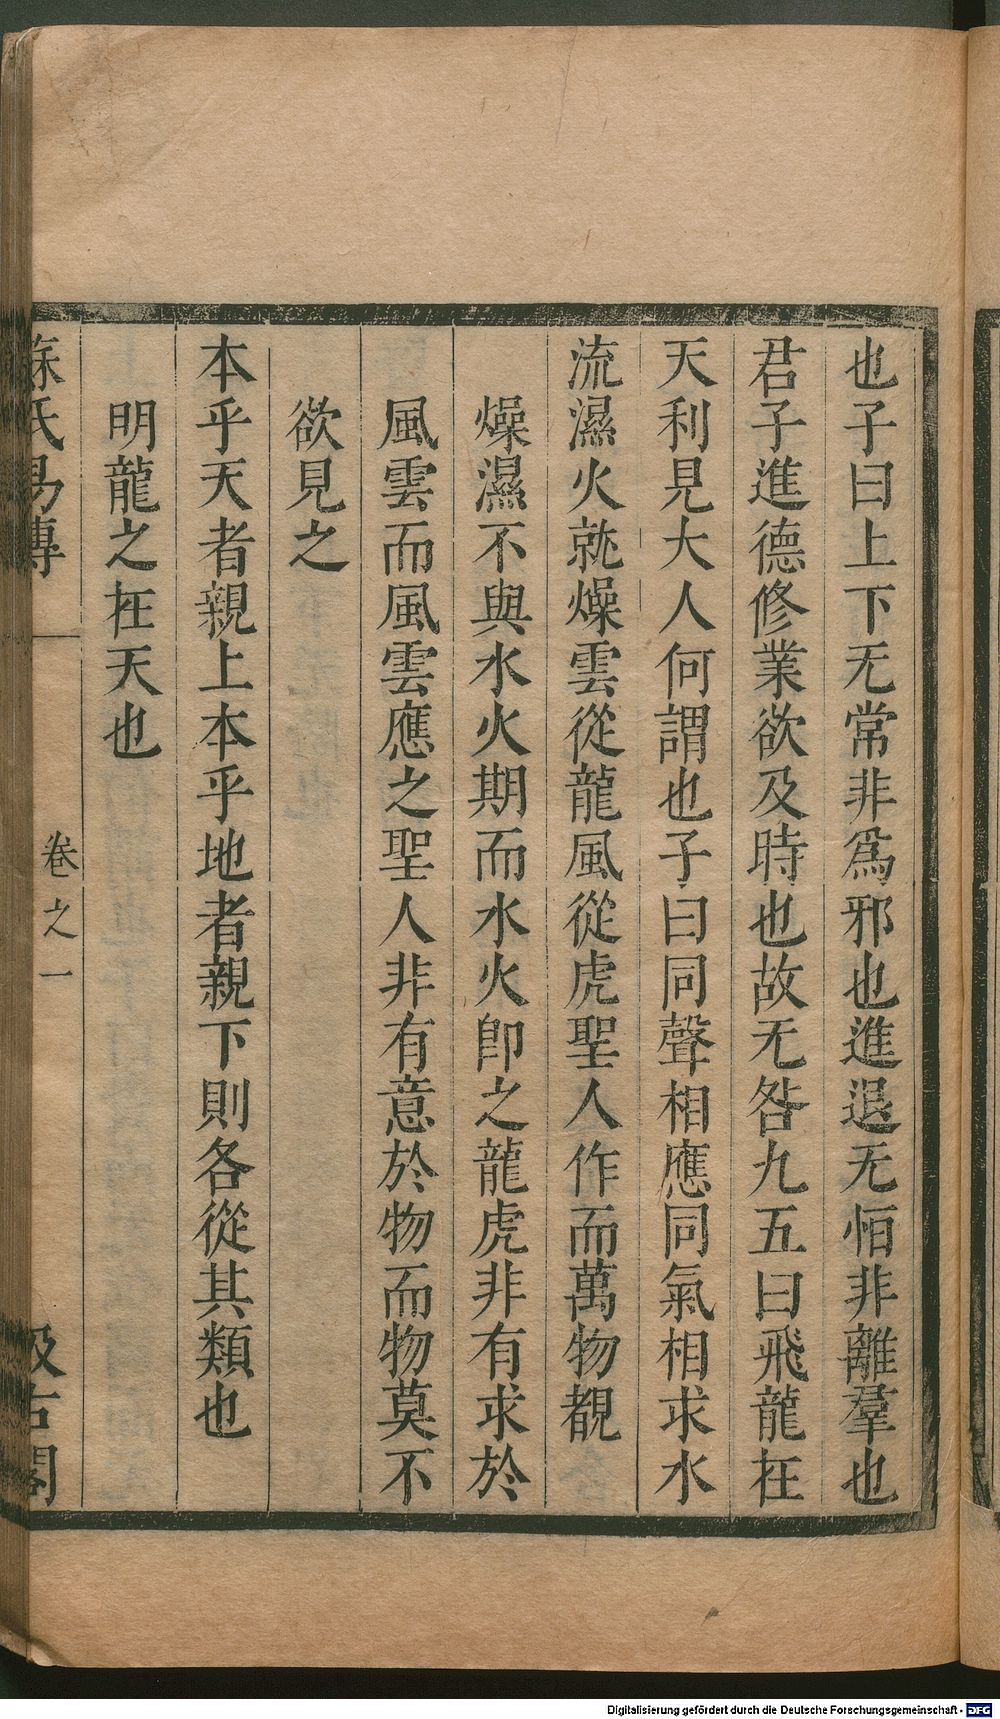 也子曰上下无常非爲邪也進退无恒非離羣也
君子進德修業欲及時也故无咎九五曰飛龍在
天利見大人何謂也子曰同聲相應同氣相求水
流濕火就燥雲從龍風從虎聖人作而萬物覩
燥濕不與水火期而水火卽之龍虎非有求於
風雲而風雲應之聖人非有意於物而物莫不
欲見之
本乎天者親上本乎地者親下則各從其類也
明龍之在天也
蘇氏易傳 卷之一 汲古閣
Digitalisierung gefördert durch die Deutsche Forschungsgemeinschaft - DFG